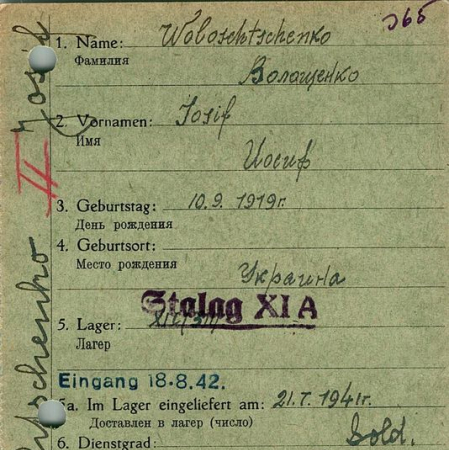 365
1. Name: Woloschtschenko
Фамилия
Волащенко
2. Vornamen: Iosif
Имя
Иосиф
3. Geburtstag: 10.9. 1919г.
День рождения
4. Geburtsort:
Место рождения
Украина
Stalag XI A
5. Lager:
Лагер
Eingang 18.8.42.
5a. Im Lager eingeliefert am: 21.7. 1941г.
Доставлен в лагер (число)
6. Dienstgrad: Sold.
II Josif